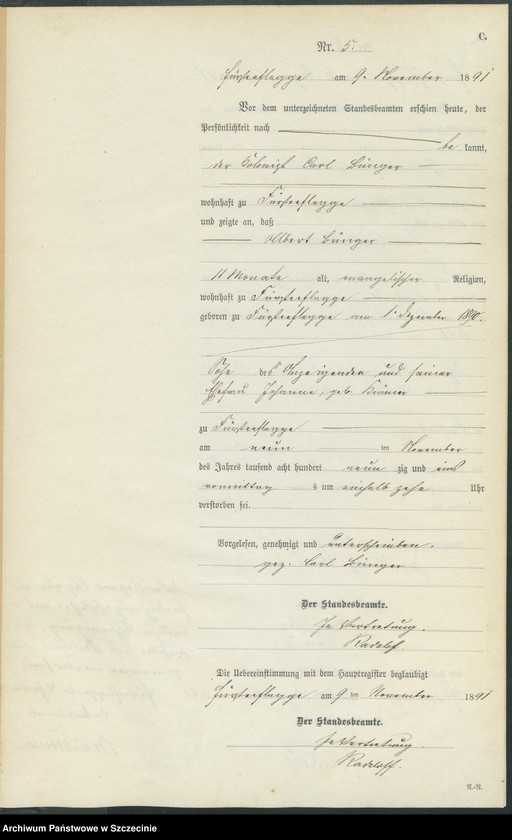 C.
Nr. 5.
Fürstenflagge am 9. November 1891
Vor dem unterzeichneten Standesbeamten erschien heute, der
Persönlichkeit nach
be kannt,
der Kolonist Carl Bünger
wohnhaft zu Fürstenflagge
und zeigte an, daß
Albert Bünger
11 Monate alt, evangelischer Religion,
wohnhaft zu Fürstenflagge
geboren zu Fürstenflagge am 1. Dezember 1890.
Sohn des Anzeigenden und seiner
Ehefrau Johanne, geb.
zu Fürstenflagge
am neun ten November
des Jahres tausend acht hundert neun zig und eins
vormittag s um einhalb zehn Uhr
verstorben sei.
Vorgelesen, genehmigt und unterschrieben.
gez. Carl Bünger
Der Standesbeamte.
In Vertretung.
Radeloff
Die Uebereinstimmung mit dem Hauptregister beglaubigt
Fürstenflagge am 9 ten November 1891
Der Standesbeamte.
In Vertretung.
Radeloff.
N.-R.
Archiwum Państwowe w Szczecinie